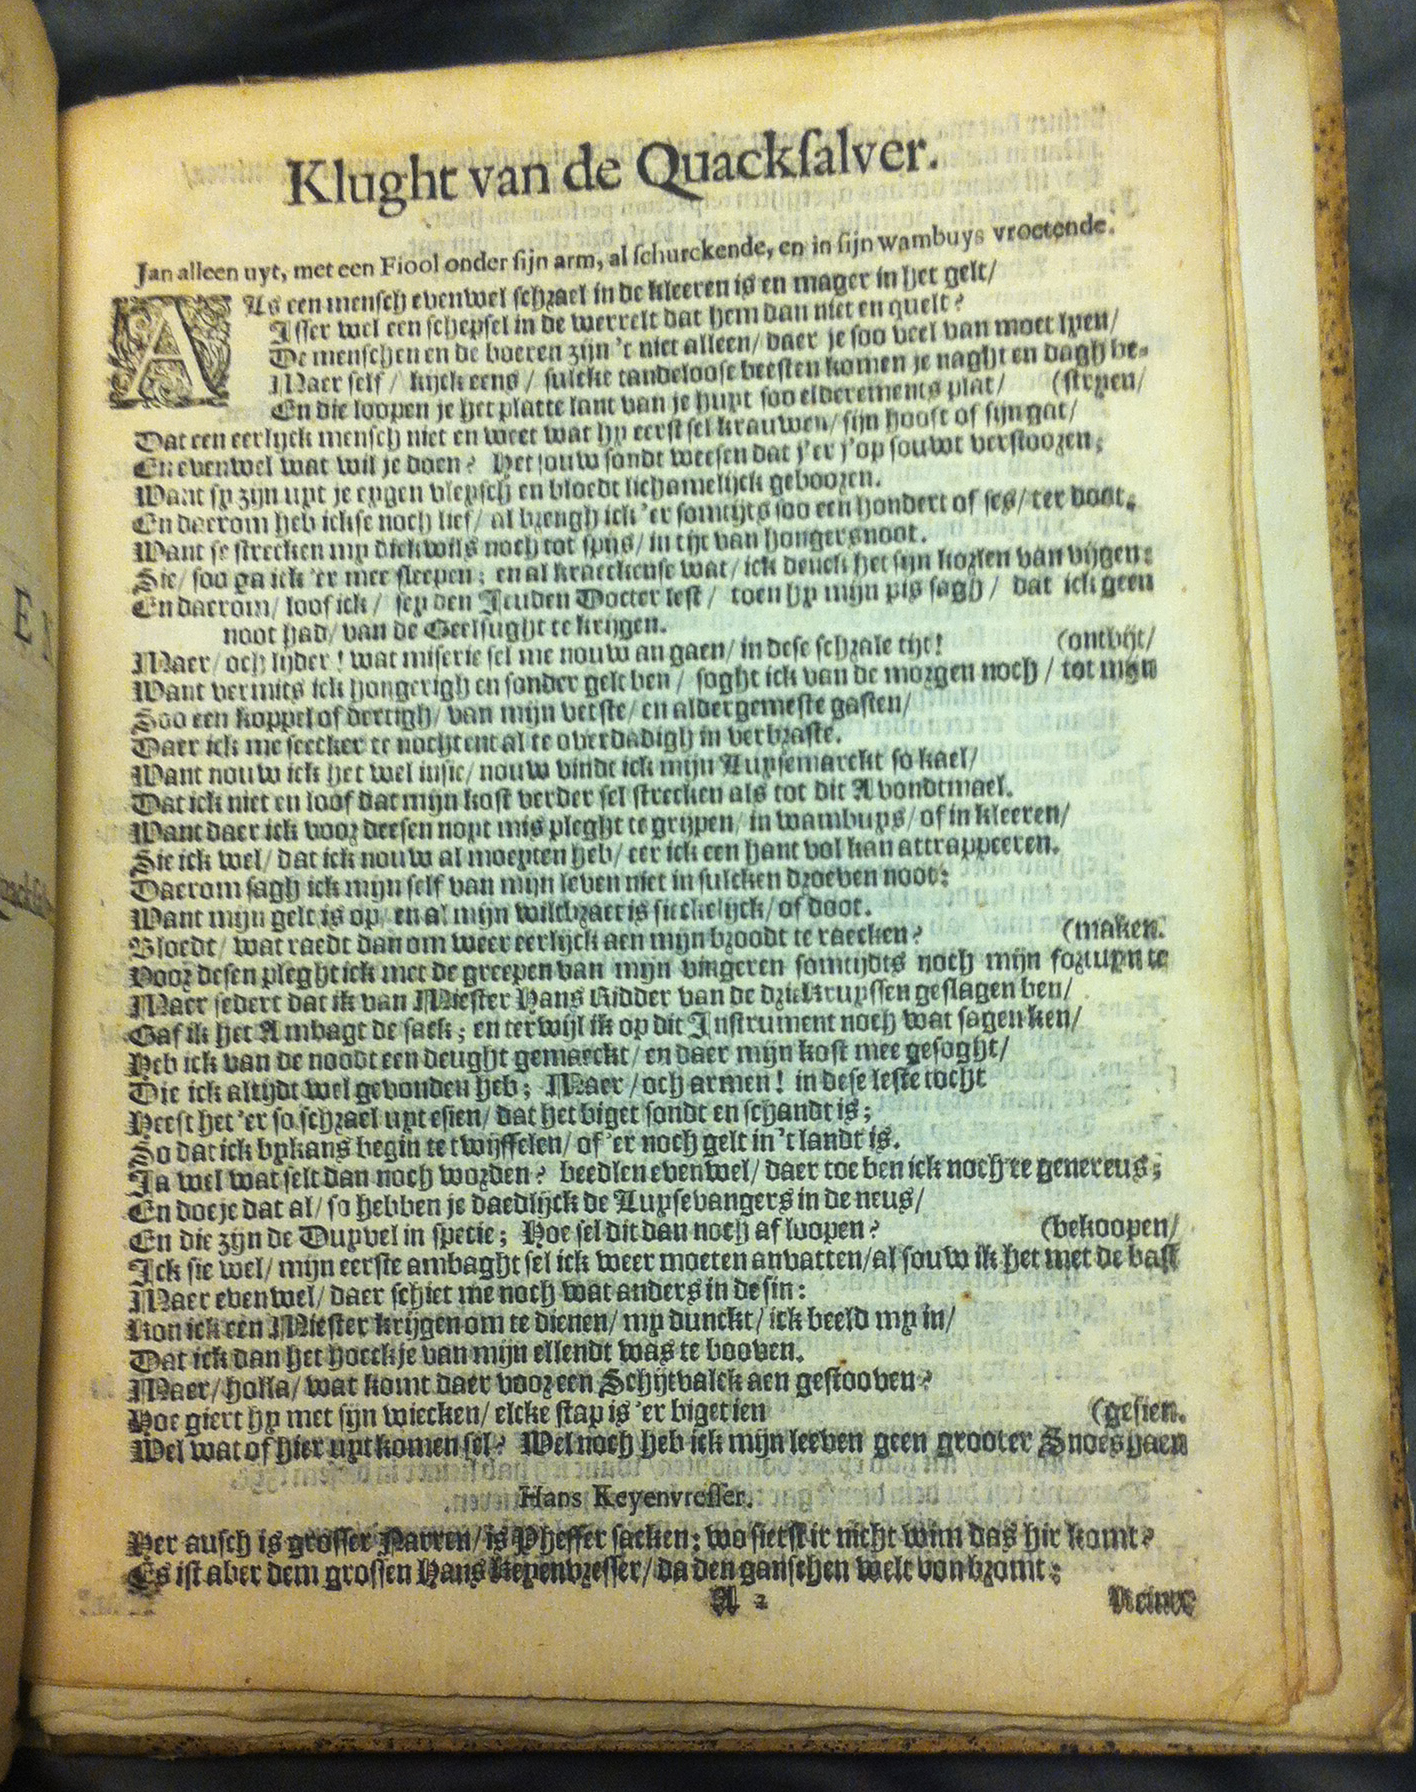 Klught van de Quackſalver.
Jan alleen uyt, met een Fiool onder ſijn arm, al ſchurckende, en in ſijn wambuys vroetende.
ALs een mensch evenwel schrael in de kleeren is en mager in het gelt/
Isser wel een schepsel in de werrelt dat hem dan niet en quelt?
De menschen en de boeren zijn 't niet alleen/ daer je soo veel van moet lyen/
Maer self/ kijck eens/ sulcke tandeloose beesten komen je naght en dagh be-
En die loopen je het platte lant van je huyt soo elderements plat/ (stryen/
Dat een eerlijck mensch niet en weet wat hy eerst sel krauwen/ sijn hooft of sijn gat/
En evenwel wat wil je doen? Het souw sondt weesen dat j'er j'op souwt verstooren;
Want sy zijn uyt je eygen vleysch en bloedt lichamelijck gebooren.
En daerom heb ickse noch lief/ al brengh ick 'er somtijts soo een hondert of ses/ ter doot.
Want se strecken my dickwils noch tot spijs/ in tijt van hongersnoot.
Sie/ soo ga ick 'er mee sleepen; en al kraeckense wat/ ick denck het sijn korlen van vijgen:
En daerom/ loof ick/ sey den Jeuden Docter lest/ toen hy mijn pis sagh/ dat ick geen
noot had/ van de Geelsught te krijgen.
Maer/ och lijder! wat miserie sel me nouw an gaen/ in dese schrale tijt! (ontbijt/
Want vermits ick hongerigh en sonder gelt ben/ soght ick van de morgen noch/ tot mijn
Soo een koppel of dertigh/ van mijn vetste/ en aldergemeste gasten/
Daer ick me seecker te nochtent al te overdadigh in verbraste.
Want nouw ick het wel insie/ nouw vindt ick mijn Luysemarckt so kael/
Dat ick niet en loof dat mijn kost verder sel strecken als tot dit Avondtmael.
Want daer ick voor deesen noyt mis pleght te grijpen/ in wambuys/ of in kleeren/
Sie ick wel/ dat ick nouw al moeyten heb/ eer ick een hant vol kan attrappeeren.
Daerom sagh ick mijn self van mijn leven niet in sulcken droeven noot:
Want mijn gelt is op/ en al mijn wiltbraet is sieckelijck/ of doot.
Bloedt/ wat raedt dan om weer eerlijck aen mijn broodt te raecken? (maken.
Voor desen pleght ick met de greepen van mijn vingeren somtijdts noch mijn fortuyn te
Maer sedert dat ik van Miester Hans Ridder van de drie Kruyssen geslagen ben/
Gaf ik het Ambagt de sack; en terwijl ik op dit Instrument noch wat sagen ken/
Heb ick van de noodt een deught gemaeckt/ en daer mijn kost mee gesoght/
Die ick altijdt wel gevonden heb; Maer/ och armen! in dese leste tocht
Heest het 'er so schrael uyt esien/ dat het biget sondt en schandt is;
So dat ick bykans begin te twijffelen/ of 'er noch gelt in 't landt is.
Ja wel wat selt dan noch worden? beedlen evenwel/ daer toe ben ick noch te genereus;
En doe je dat al/ so hebben je daedlijck de Luysevangers in de neus/
En die zijn de Duyvel in specie; Hoe sel dit dan noch af loopen? (bekoopen/
Ick sie wel/ mijn eerste ambaght sel ick weer moeten anvatten/ al souw ik het met de bast
Maer evenwel/ daer schiet me noch wat anders in de sin:
Kon ick een Miester krijgen om te dienen/ my dunckt/ ick beeld my in/
Dat ick dan het hoeckje van mijn ellendt was te booven.
Maer/ holla/ wat komt daer voor een Schijtvalck aen gestooven?
Hoe giert hy met sijn wiecken/ elcke stap is 'er biget ien (gesien.
Wel wat of hier uyt komen sel? Wel noch heb ick mijn leeven geen grooter Snoeshaen
Hans Keyenvreſſer.
Her ausch is grosser Narren/ is Pheffer sacken; wo sietst ir nicht winn das hir komt?
Es ist aber dem grossen Hans Keyenvresser/ da den ganschen welt von bromt;
A 2